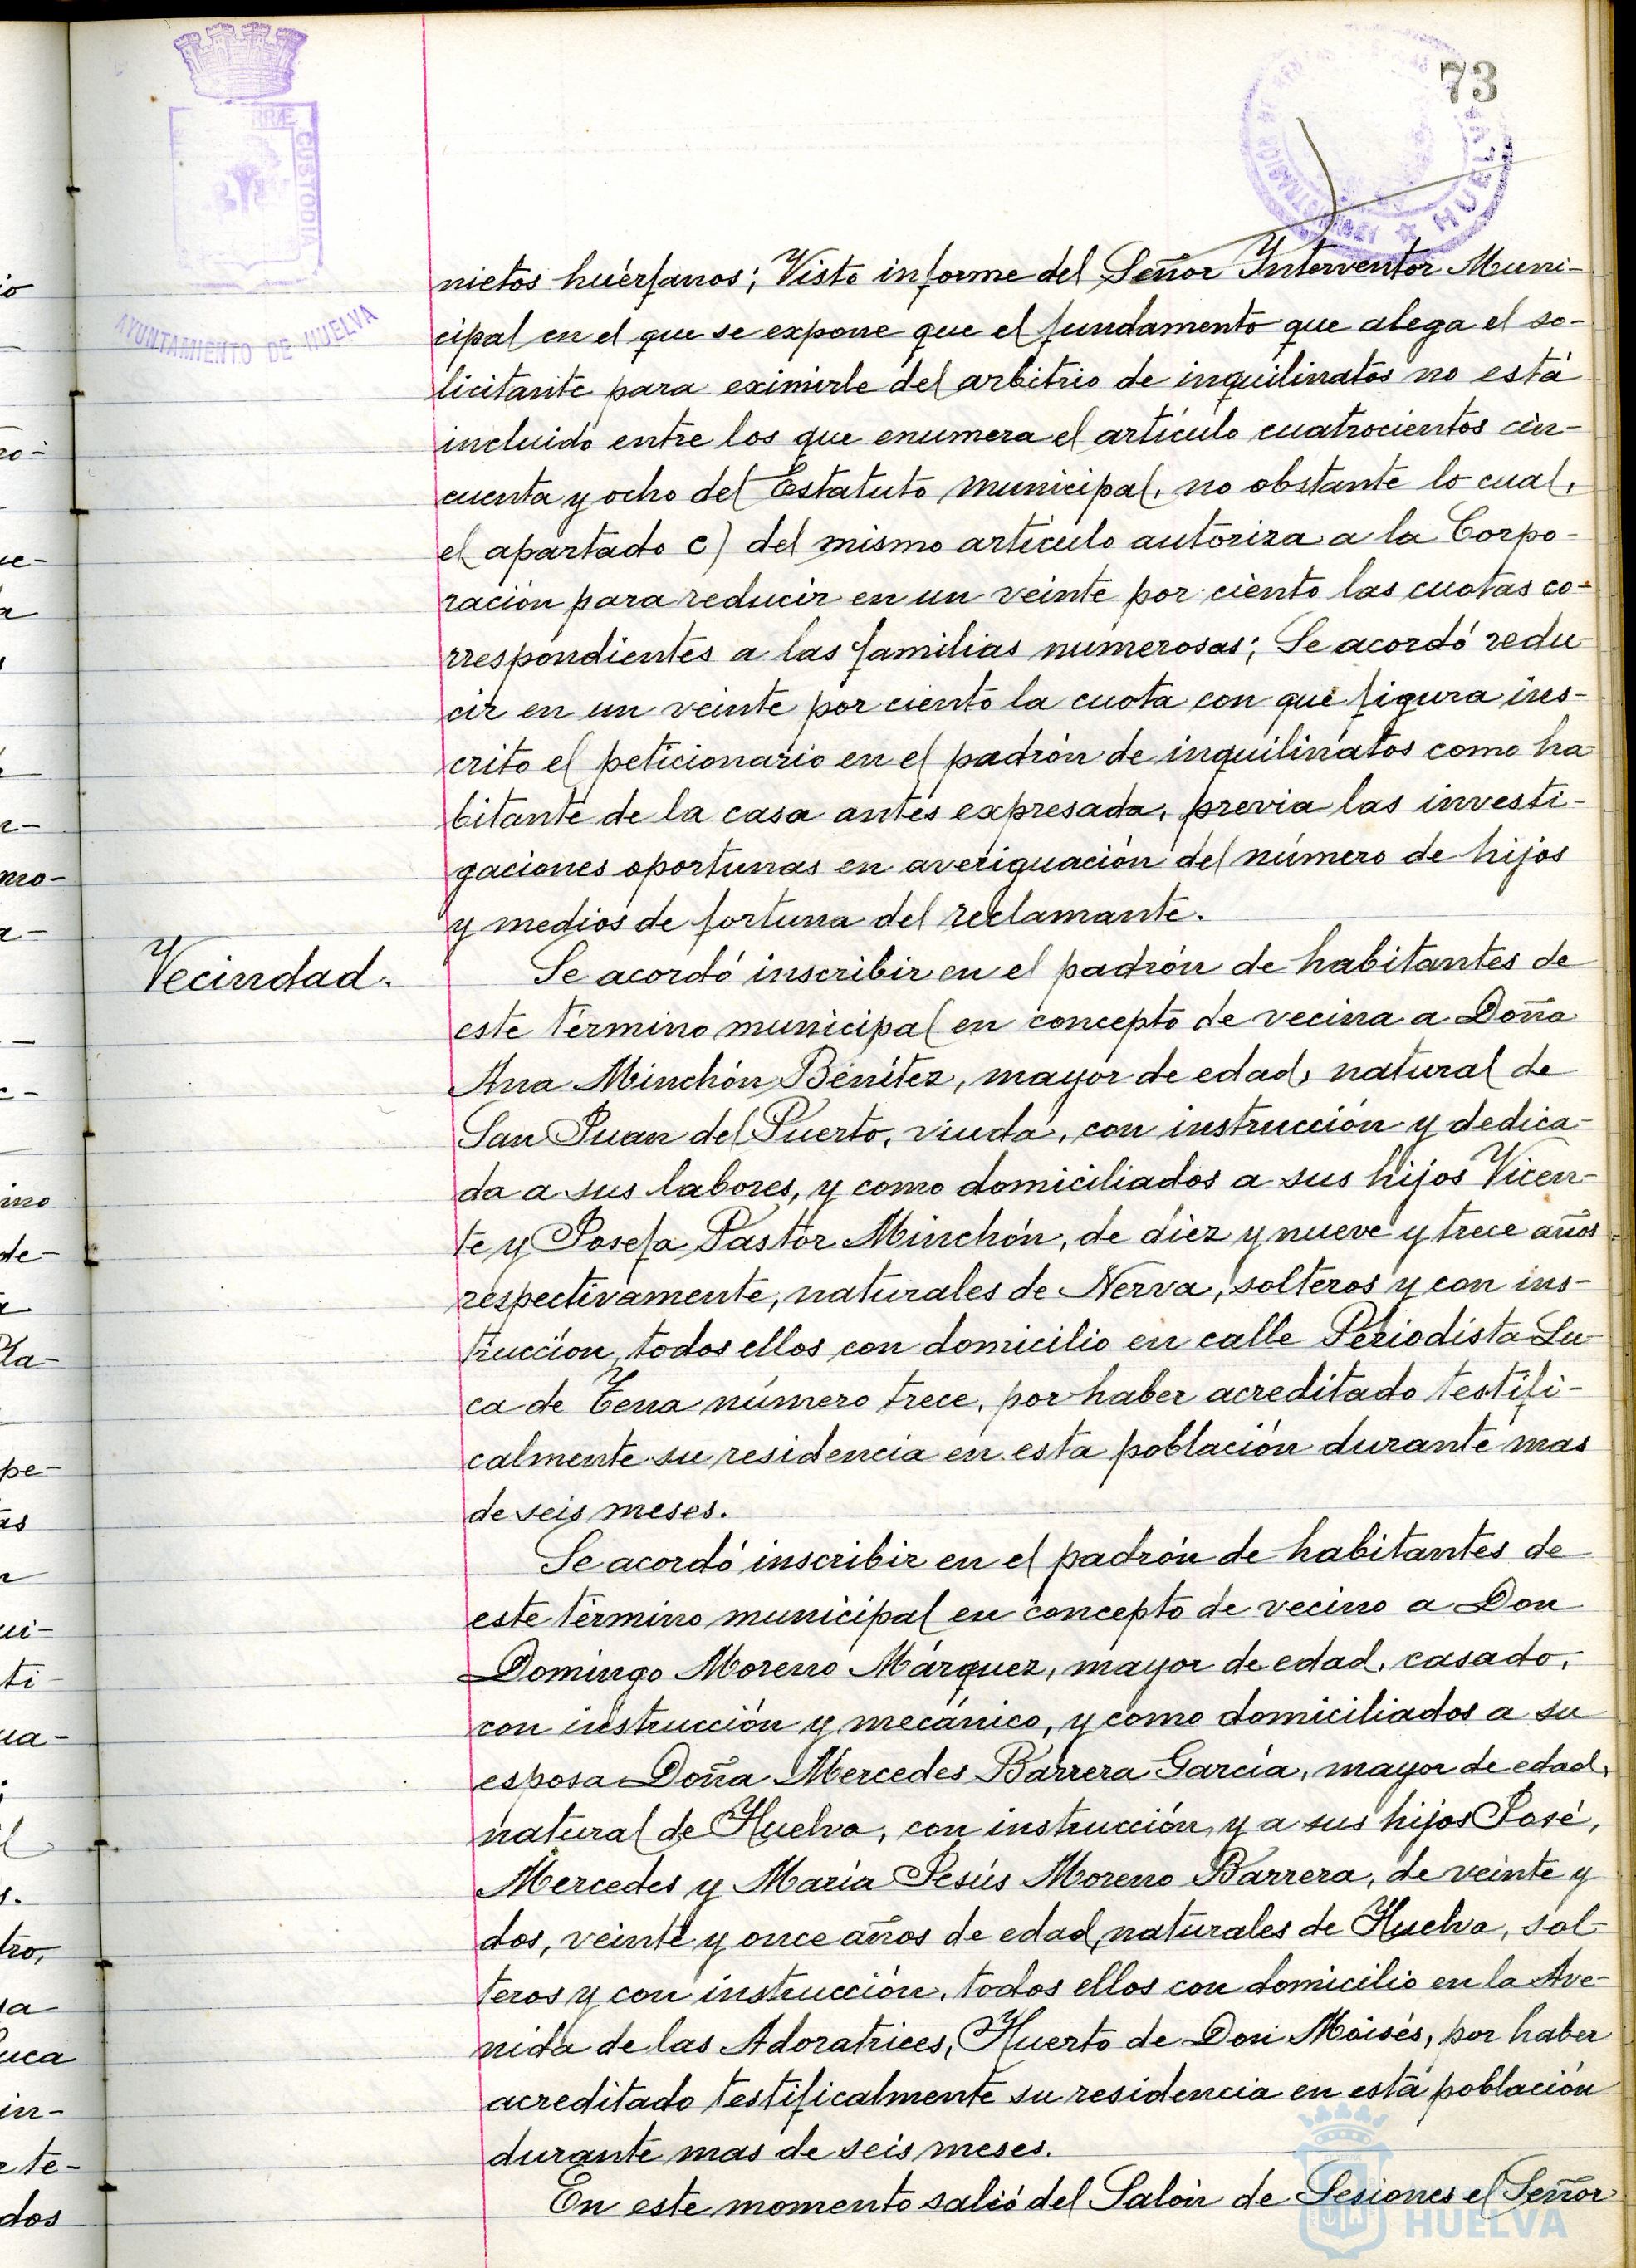 73
RRÆ CUSTODIA
AYUNTAMIENTO DE HUELVA
HUELVA
nietos huérfanos; Visto informe del Señor Interventor Muni-
cipal en el que se expone que el fundamento que alega el so-
licitante para eximirle del arbitrio de inquilinatos no está
incluido entre los que enumera el artículo cuatrocientos cin-
cuenta y ocho del Estatuto municipal, no obstante lo cual,
el apartado c) del mismo artículo autoriza a la Corpo-
ración para reducir en un veinte por ciento las cuotas co-
rrespondientes a las familias numerosas; Se acordó redu
cir en un veinte por ciento la cuota con que figura ins-
crito el peticionario en el padrón de inquilinatos como ha
bitante de la casa antes expresada, previa las investi-
gaciones oportunas en averiguación del número de hijos
y medios de fortuna del reclamante.
Vecindad.
Se acordó inscribir en el padrón de habitantes de
este término municipal en concepto de vecina a Doña
Ana Minchón Benítez, mayor de edad, natural de
San Juan del Puerto, viuda, con instrucción y dedica-
da a sus labores, y como domiciliados a sus hijos Vicen-
te y Josefa Pastor Minchón, de diez y nueve y trece años
respectivamente, naturales de Nerva, solteros y con ins-
trucción, todos ellos con domicilio en calle Periodista Lu-
ca de Tena número trece, por haber acreditado testifi-
calmente su residencia en esta población durante mas
de seis meses.
Se acordó inscribir en el padrón de habitantes de
este término municipal en concepto de vecino a Don
Domingo Moreno Márquez, mayor de edad, casado,
con instrucción y mecánico, y como domiciliados a su
esposa Doña Mercedes Barrera García, mayor de edad,
natural de Huelva, con instrucción, y a sus hijos José,
Mercedes y María Jesús Moreno Barrera, de veinte y
dos, veinte y once años de edad, naturales de Huelva, sol-
teros y con instrucción, todos ellos con domicilio en la Ave-
nida de las Adoratrices, Huerto de Don Moisés, por haber
acreditado testificalmente su residencia en esta población
durante mas de seis meses.
En este momento salió del Salón de Sesiones el Señor
HUELVA